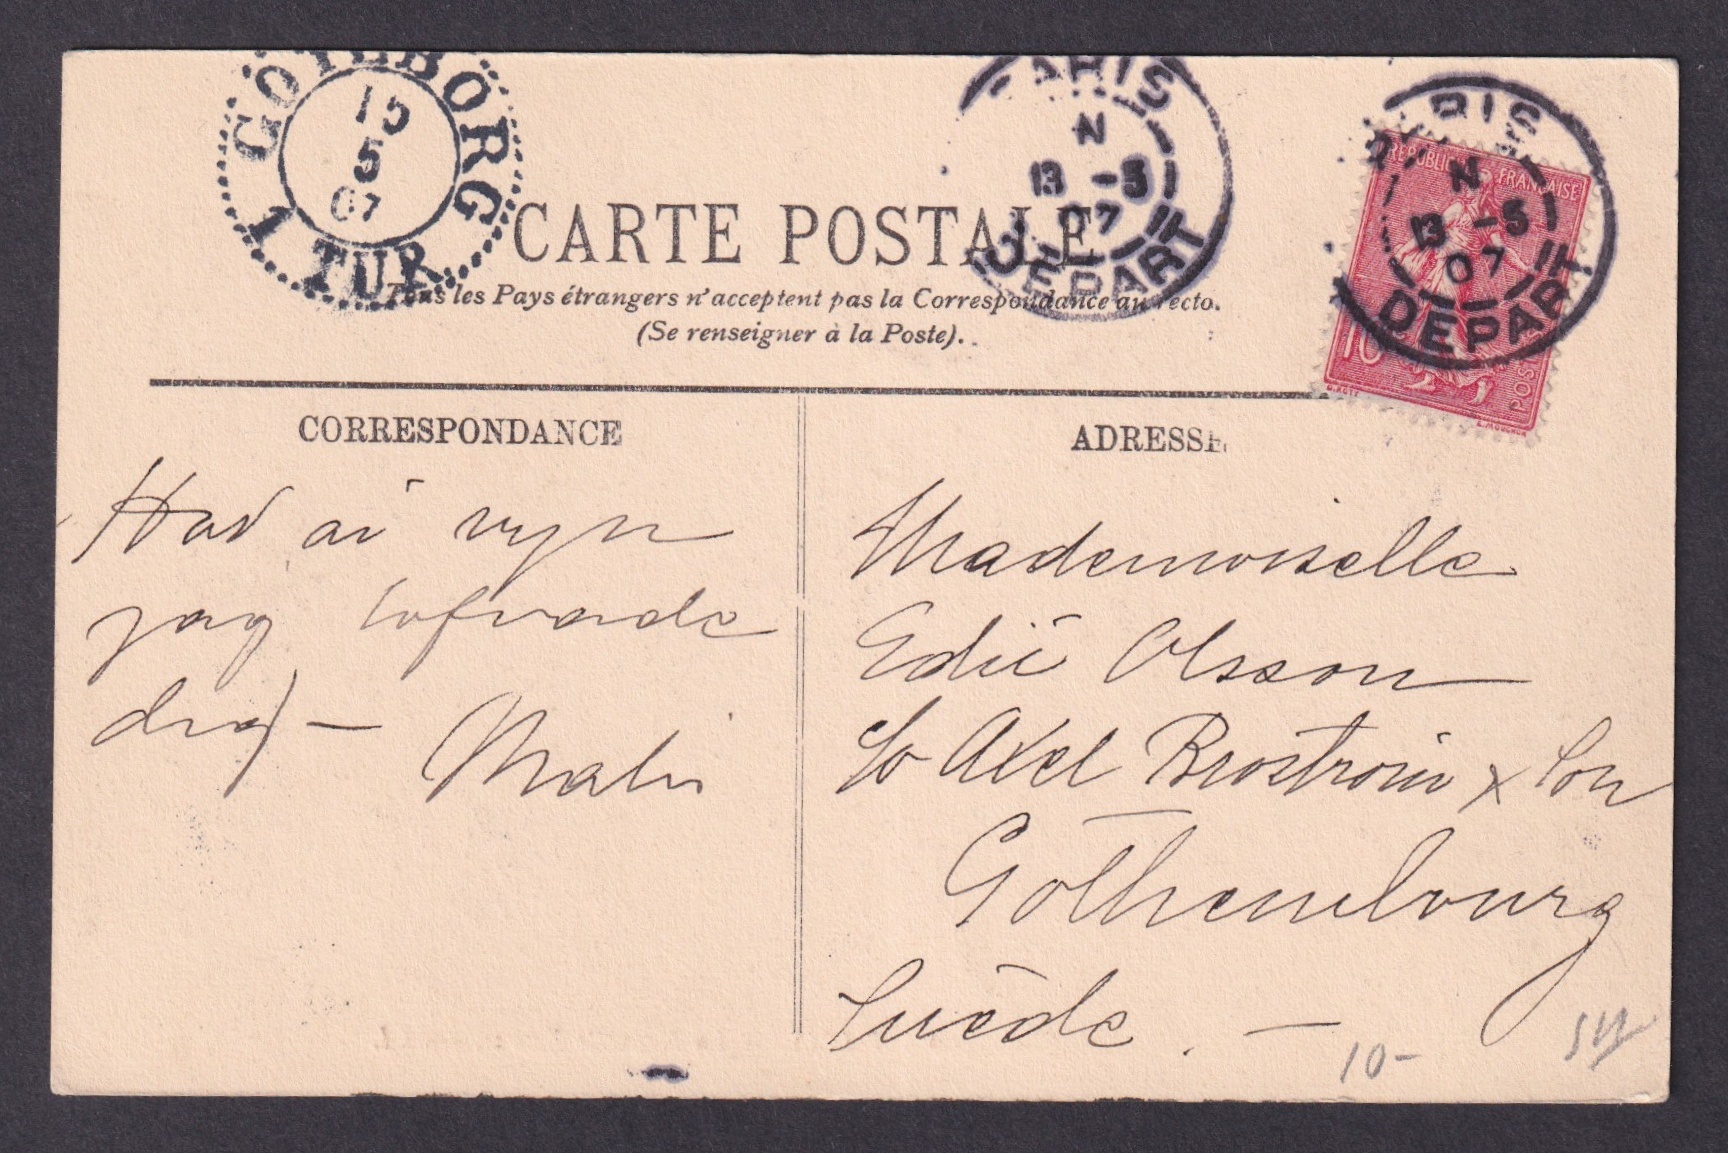 GÖTEBORG
15
5
07
1 TUR
PARIS
N
13 -5
07
DEPART
RIS
N
13 -5
07
DEPART
REPUBLIQUE FRANÇAISE
10
POSTES
O. ROTY
E. MOUCHON
CARTE POSTALE
Tous les Pays étrangers n'acceptent pas la Correspondance au recto.
(Se renseigner à la Poste).
CORRESPONDANCE
ADRESSE
jag lofvade
dig — Malin
Mademoiselle
Olsson
Axel Broström & Son
Gothembourg
Suède. —
10-